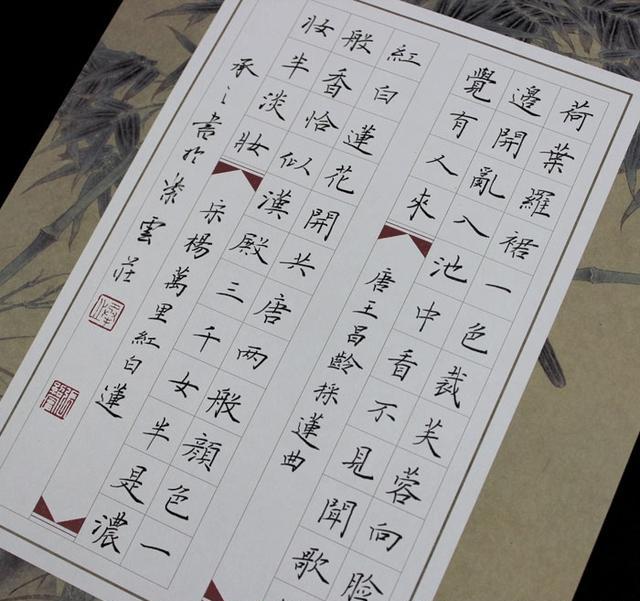 荷葉羅裙一色裁芙蓉向臉
邊開亂入池中看不見聞歌
覺有人來 唐王昌齡採蓮曲
紅白蓮花開共唐兩般顏色一
般香恰似漢殿三千女半是濃
妝半淡妝 宋楊萬里紅白蓮
承之書於紫雲莊